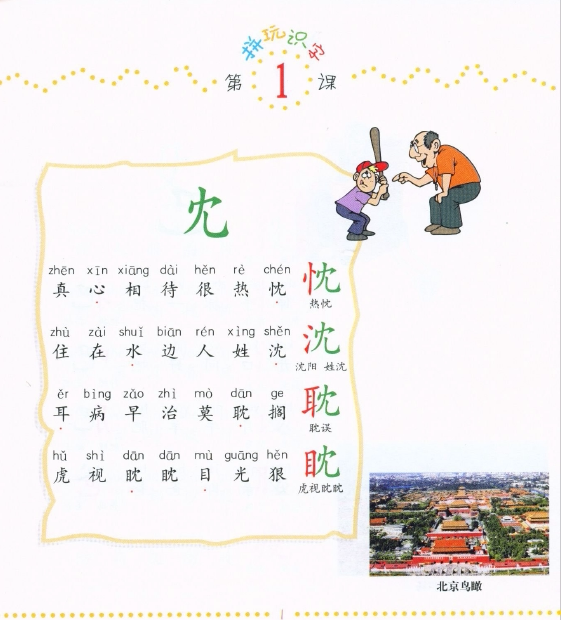 拼玩识字
第1课
冘
zhēn xīn xiāng dài hěn rè chén
真心相待很热忱 忱
热忱
zhù zài shuǐ biān rén xìng shěn
住在水边人姓沈 沈
沈阳 姓沈
ěr bìng zǎo zhì mò dān ge
耳病早治莫耽搁 耽
耽误
hǔ shì dān dān mù guāng hěn
虎视眈眈目光狠 眈
虎视眈眈
北京鸟瞰